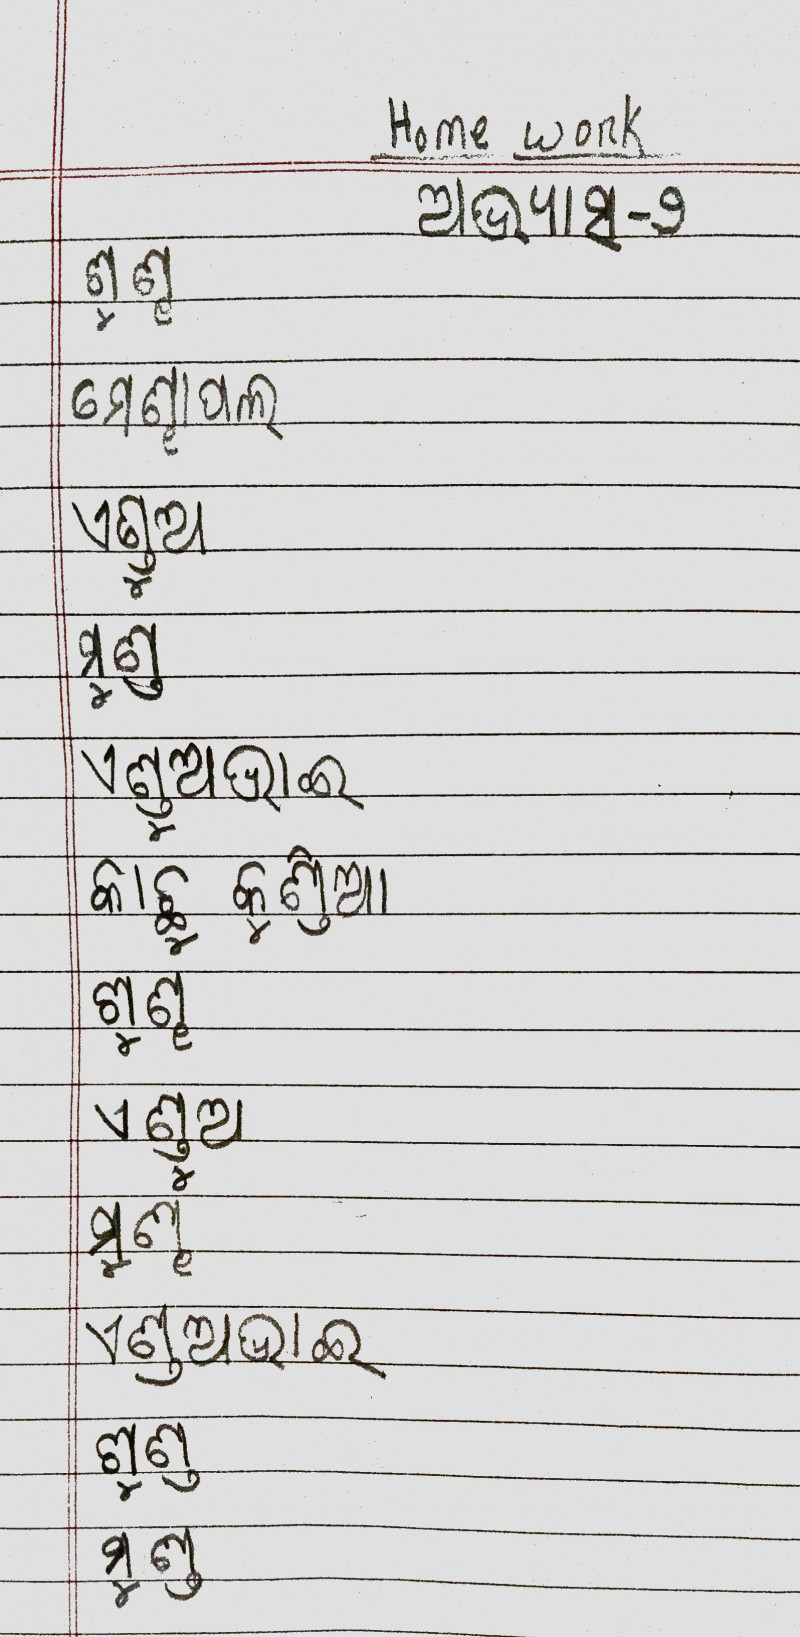 Home work
ଅଭ୍ୟାସ-୨
ଶୁଣ୍ଢ
ମେଣ୍ଢାପଲ
ଏଣ୍ଡୁଅ
ମୁଣ୍ଡ
ଏଣ୍ଡୁଅଭାଇ
କାଛୁ କୁଣ୍ଡିଆ
ଶୁଣ୍ଢ
ଏଣ୍ଡୁଅ
ମୁଣ୍ଢ
ଏଣ୍ଡୁଅଭାଇ
ଶୁଣ୍ଡ
ମୁଣ୍ଡ